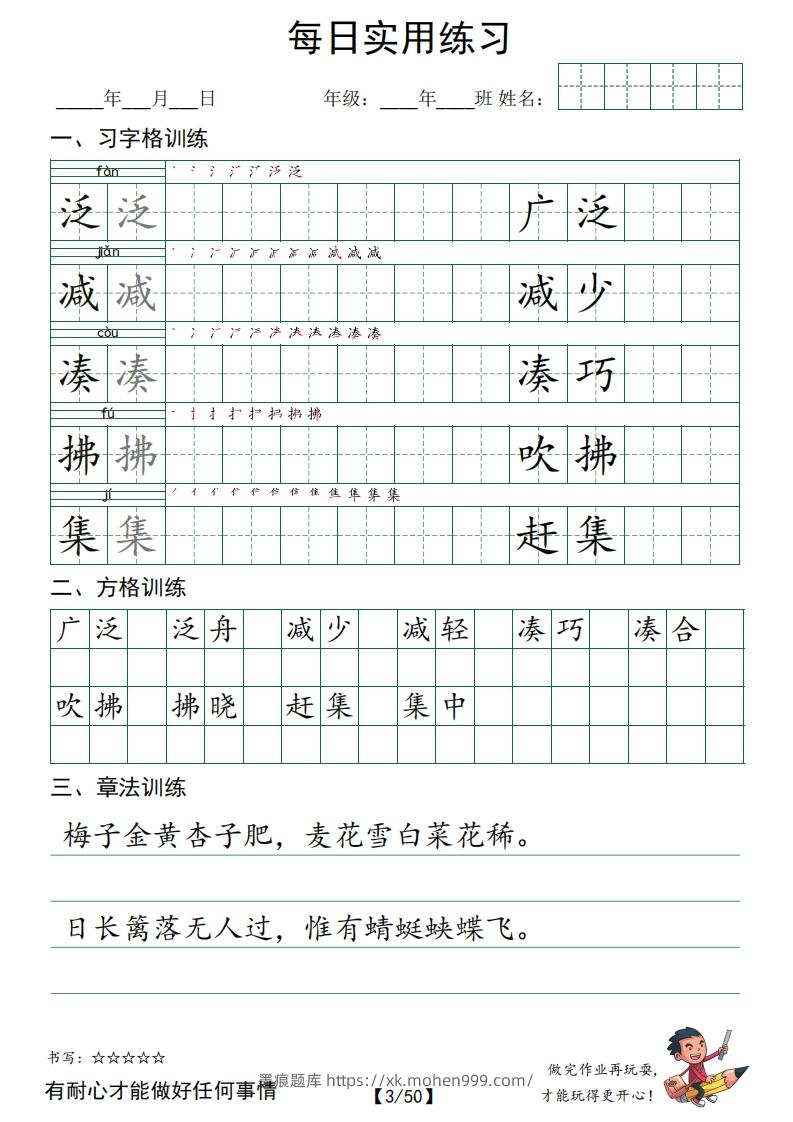 每日实用练习
_____年___月___日 年级：____年____班 姓名：
一、习字格训练
fàn
泛 泛 广 泛
jiǎn
减 减 减 少
còu
凑 凑 凑 巧
fú
拂 拂 吹 拂
jí
集 集 赶 集
二、方格训练
广泛 泛舟 减少 减轻 凑巧 凑合
吹拂 拂晓 赶集 集中
三、章法训练
梅子金黄杏子肥，麦花雪白菜花稀。
日长篱落无人过，惟有蜻蜓蛱蝶飞。
书写：☆☆☆☆☆
有耐心才能做好任何事情
墨痕题库 https://xk.mohen999.com/
【3/50】
做完作业再玩耍，
才能玩得更开心！